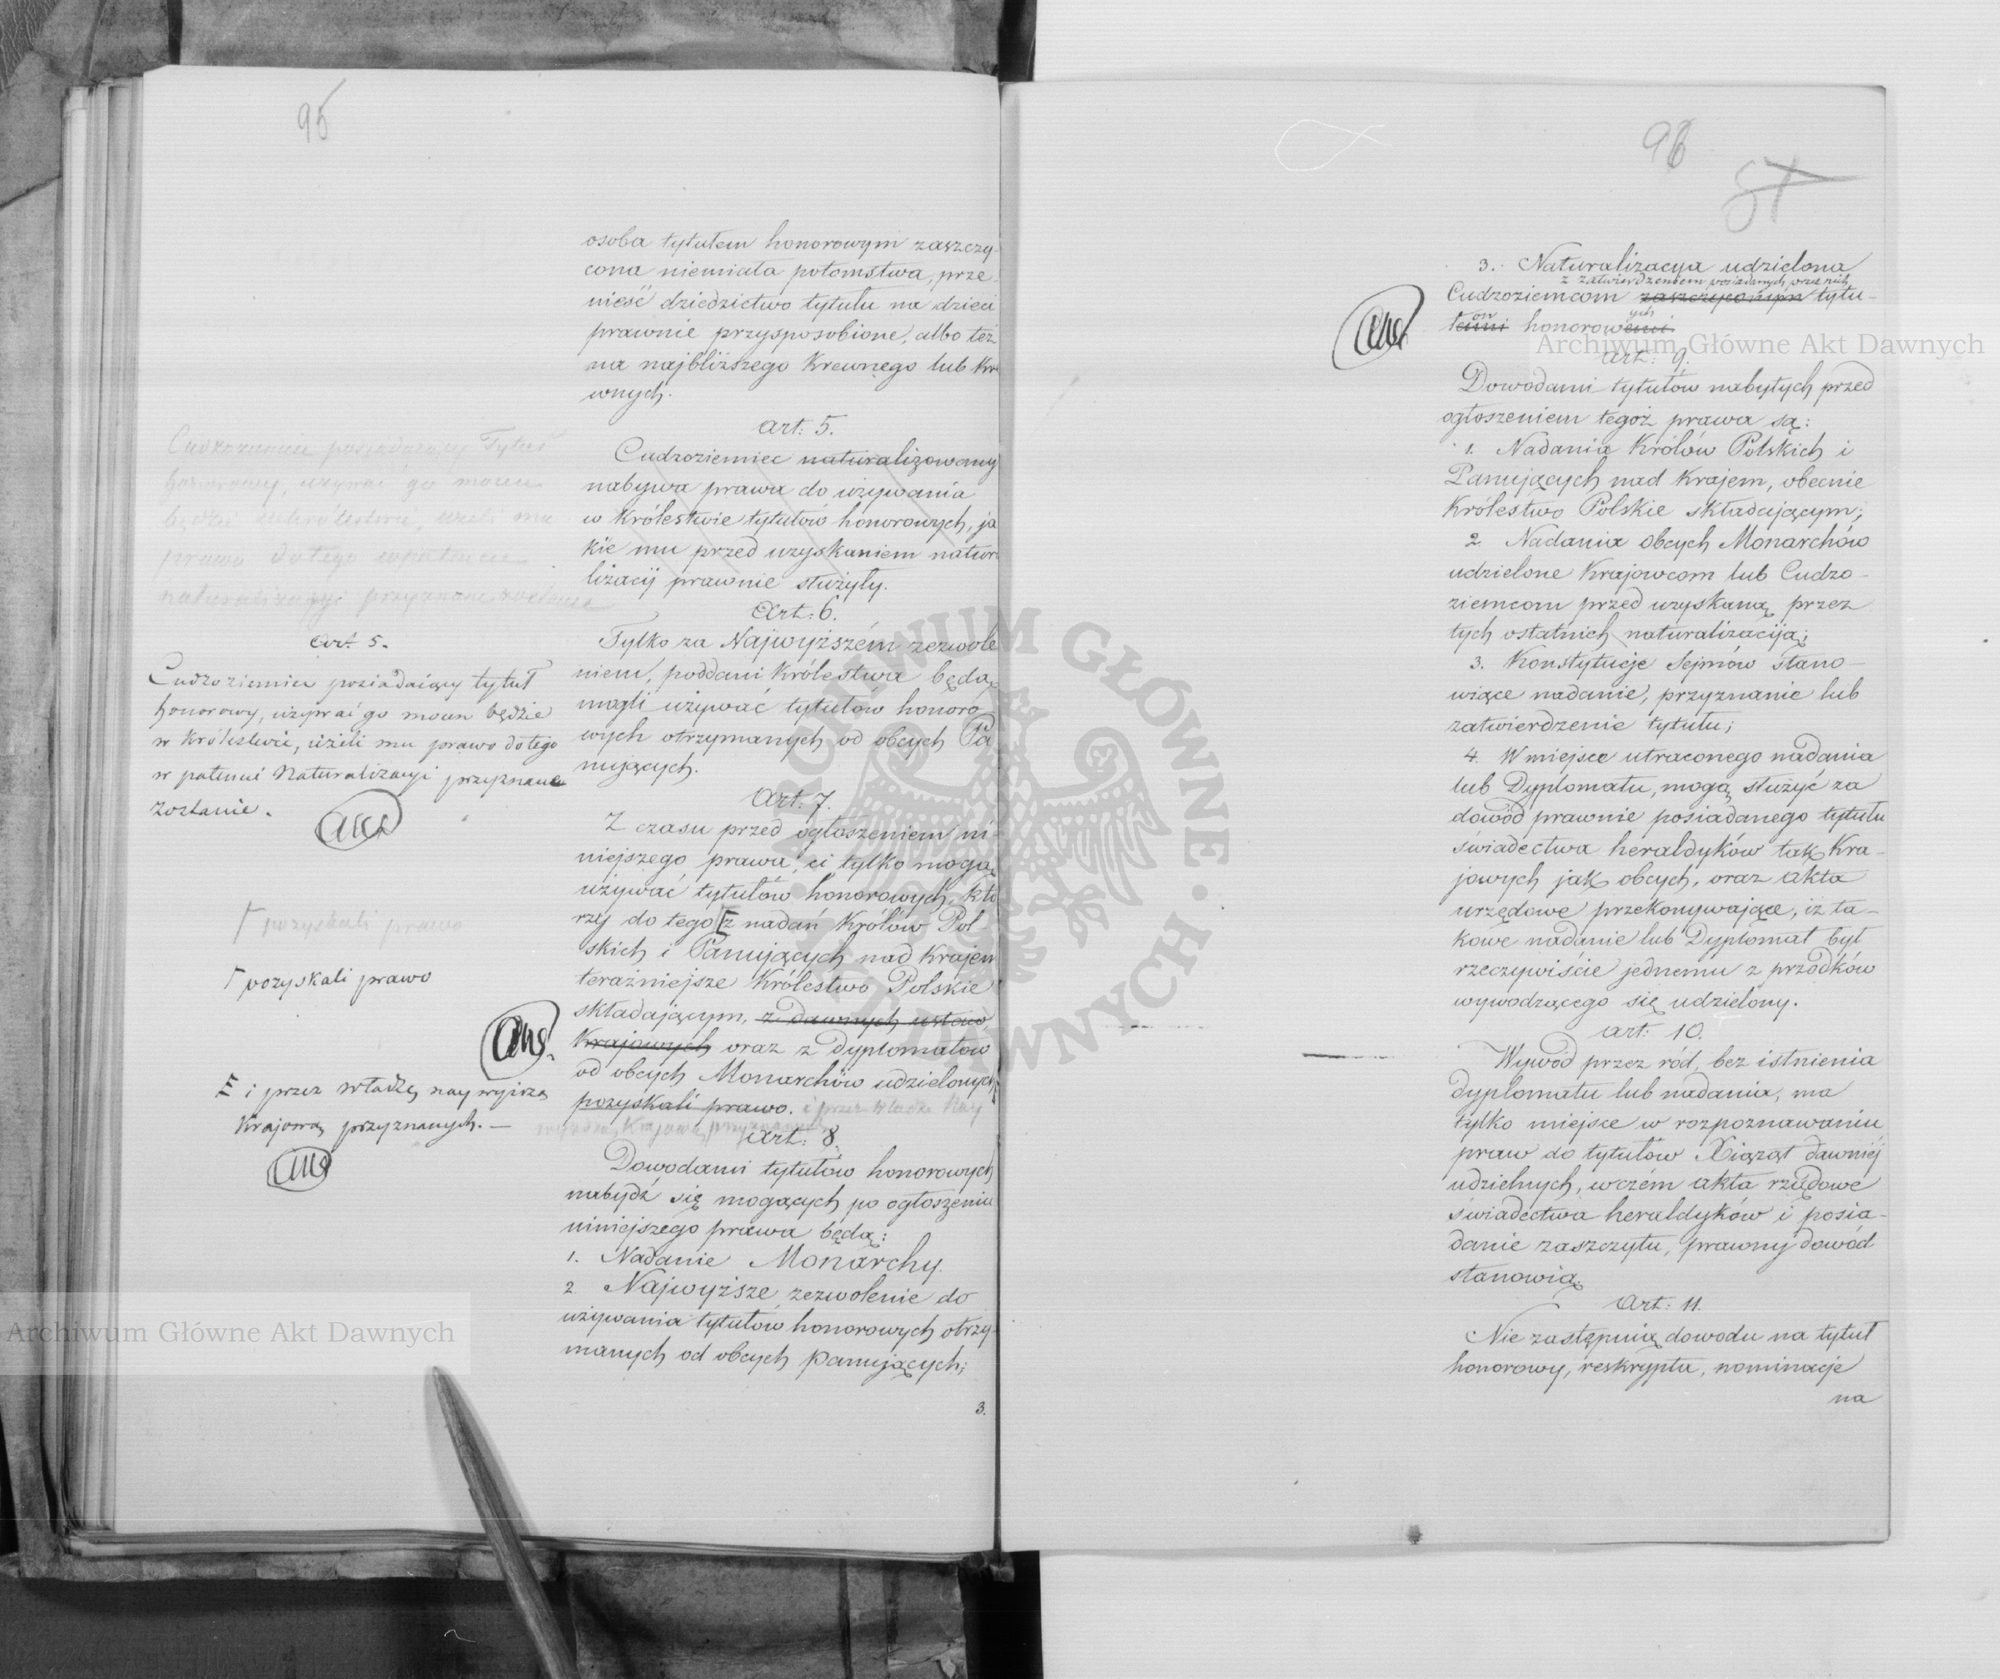 95
osoba tytułem honorowym zaszczy-
cona niemiała potomstwa, prze-
nieść dziedzictwo tytułu na dzieci
prawnie przysposobione, albo też
na najbliższego Krewnego lub Kre
wnych.
Art: 5.
Cudzoziemiec naturalizowany
nabywa prawa do używania
w Królestwie tytułów honorowych, ja
kie mu przed uzyskaniem natura
lizacij prawnie służyły.
Art: 6.
Tylko za Najwyższém zezwole
niem, poddani Królestwa będą
mogli używać tytułów honoro
wych otrzymanych od obcych Pa
nujących.
Art: 7.
Z czasu przed ogłoszeniem ni-
niejszego prawa, ci tylko mogą
używać tytułów honorowych, któ
rzy do tego z nadań Królów Pol-
skich i Panujących nad Krajem
teraźniejsze Królestwo Polskie
składającym, z dawnych ustaw
Krajowych oraz z dyplomatów
od obcych Monarchów udzielonych
pozyskali prawo. i przez władzę Nay
wyższą Krajową przyznanych
Art: 8.
Dowodami tytułów honorowych
nabydź się mogących po ogłoszeniu
niniejszego prawa będą:
1. Nadanie Monarchy.
2 Najwyższe zezwolenie do
używania tytułów honorowych otrzy-
manych od obcych Panujących;
3.
Cudzoziemiec posiadający Tytuł
honorowy, używać go mocen
będzie w Królestwie, jeżeli mu
prawo do tego w patencie
naturalizacyi przyznane zostanie
Art 5.
Cudzoziemiec posiadaiący tytuł
honorowy, używać go mocen będzie
w Królestwie, ieżeli mu prawo do tego
w patencie Naturalizacyi przyznane
zostanie.
pozyskali prawo
pozyskali prawo
i przez władzę naywyższą
Krajową przyznanych. —
96
3. Naturalizacya udzielona
z zatwierdzeniem posiadanych przez nich
Cudzoziemcom zaszczyconym tytu-
ów ych
łami honorowemi.
Art: 9.
Dowodami tytułów nabytych przed
ogłoszeniem tegoż prawa są:
1. Nadania Królów Polskich i
Panujących nad Krajem, obecnie
Królestwo Polskie składającym;
2. Nadania obcych Monarchów
udzielone Krajowcom lub Cudzo-
ziemcom przed uzyskaną przez
tych ostatnich naturalizaciją;
3. Konstytucje Sejmów stano-
wiące nadanie, przyznanie lub
zatwierdzenie tytułu;
4. W miejsce utraconego nadania
lub Dyplomatu, mogą służyć za
dowód prawnie posiadanego tytułu
świadectwa heraldyków tak Kra-
jowych jak obcych, oraz akta
urzędowe przekonywające, iż ta-
kowe nadanie lub Dyplomat był
rzeczywiście jednemu z przodków
wywodzącego się udzielony.
Art: 10.
Wywód przez ród, bez istnienia
dyplomatu lub nadania, ma
tylko miejsce w rozpoznawaniu
praw do tytułów Xiążąt dawniej
udzielnych, wczém akta rządowe
świadectwa heraldyków i posia-
danie zaszczytu, prawny dowód
stanowią
Art: 11.
Nie zastąpią dowodu na tytuł
honorowy, reskrypta, nominacje
na
Archiwum Główne Akt Dawnych
Archiwum Główne Akt Dawnych
ARCHIWUM GŁÓWNE AKT DAWNYCH